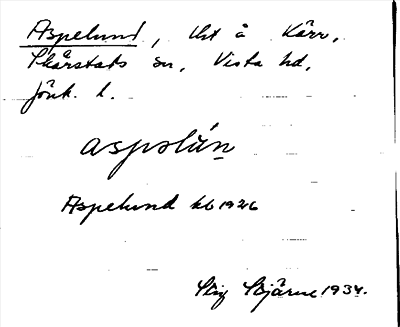 Aspelund, lht å Kärr,
Skärstads sn, Vista hd,
Jönk. l.
aspəlún
Aspelund kb 1926
Stig Bjärne 1934.